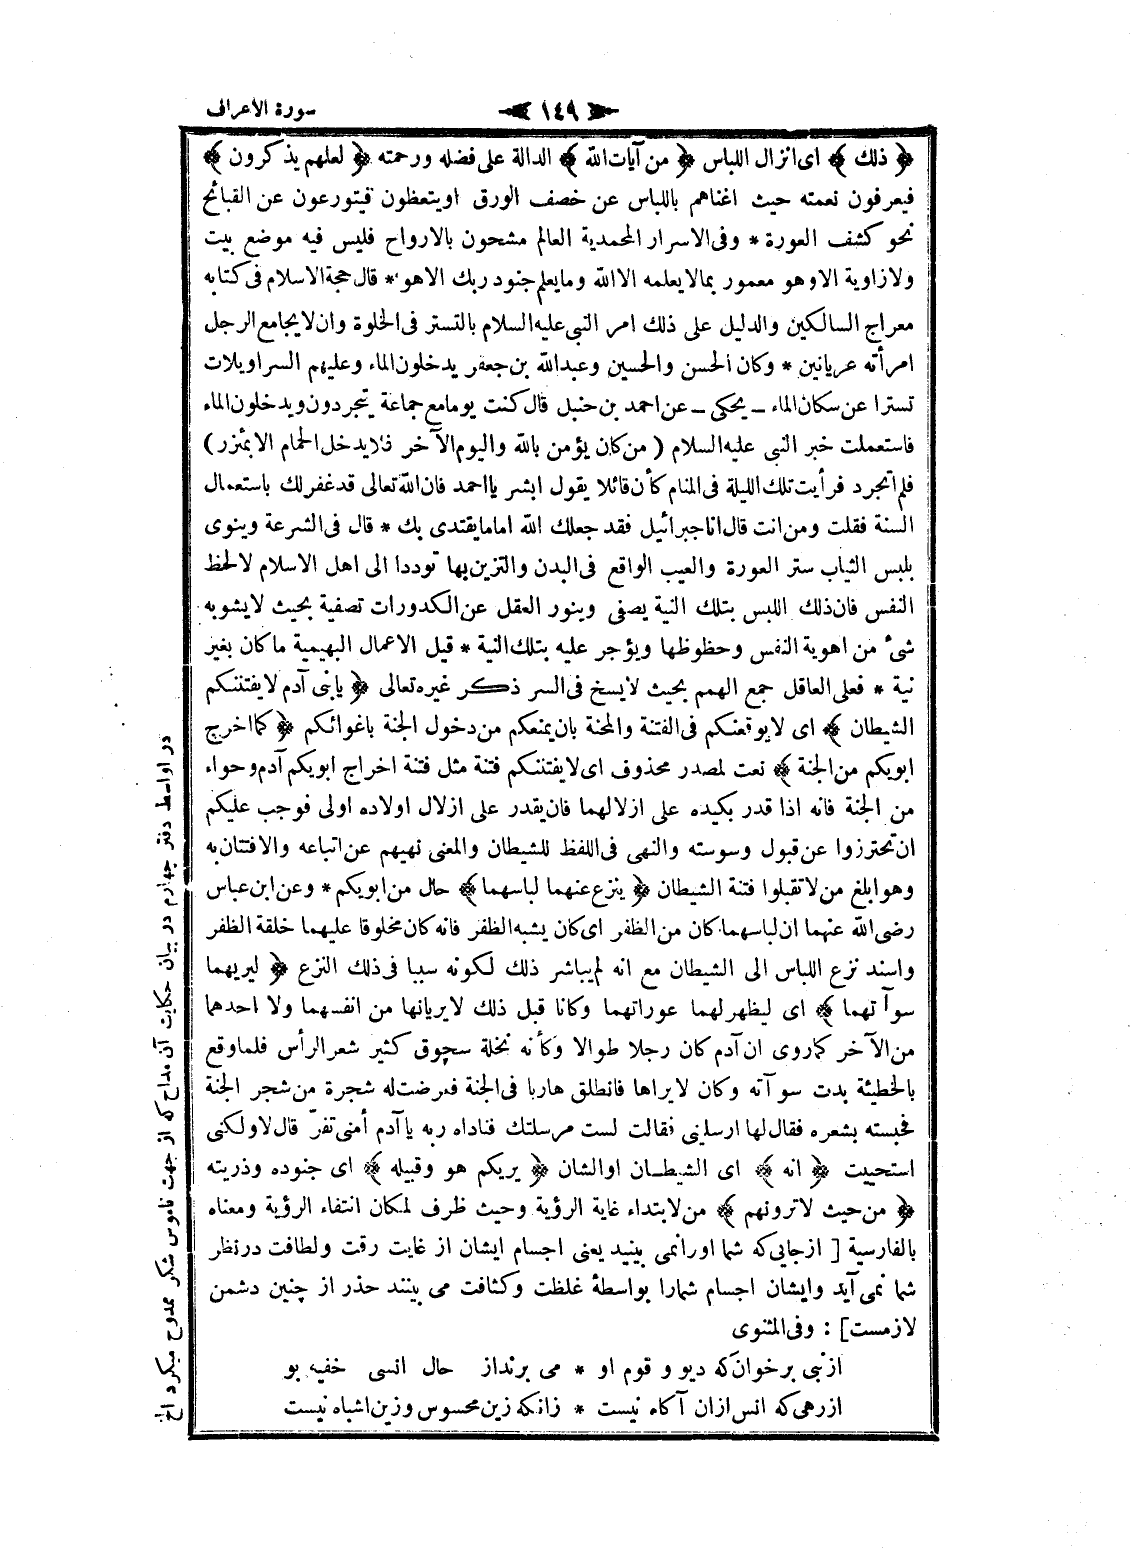 سورة الأعراف
﴿ ١٤٩ ﴾
﴿ ذلك ﴾ اى انزال اللباس ﴿ من آيات الله ﴾ الدالة على فضله ورحمته ﴿ لعلهم يذكرون ﴾
فيعرفون نعمته حيث اغناهم باللباس عن خصف الورق او يتعظون فيتورعون عن القبائح
نحو كشف العورة * وفى الاسرار المحمدية العالم مشحون بالارواح فليس فيه موضع بيت
ولا زاوية الا وهو معمور بمالا يعلمه الا الله وما يعلم جنود ربك الا هو * قال حجة الاسلام فى كتابه
معراج السالكين والدليل على ذلك امر النبى عليه السلام بالتستر فى الخلوة وان لا يجامع الرجل
امرأته عريانين * وكان الحسن والحسين وعبدالله بن جعفر يدخلون الماء وعليهم السراويلات
تسترا عن سكان الماء ــ يحكى ــ عن احمد بن حنبل قال كنت يوما مع جماعة يتجردون ويدخلون الماء
فاستعملت خبر النبى عليه السلام ( من كان يؤمن بالله واليوم الآخر فلا يدخل الحمام الا بمئزر )
فلم اتجرد فرأيت تلك الليلة فى المنام كأن قائلا يقول ابشر يا احمد فان الله تعالى قد غفر لك باستعمال
السنة فقلت ومن انت قال انا جبرائيل فقد جعلك الله اماما يقتدى بك * قال فى الشرعة وينوى
بلبس الثياب ستر العورة والعيب الواقع فى البدن والتزين بها توددا الى اهل الاسلام لا لحظ
النفس فان ذلك اللبس بتلك النية يصفى وينور العقل عن الكدورات تصفية بحيث لا يشوبه
شىء من اهوية النفس وحظوظها ويؤجر عليه بتلك النية * قيل الاعمال البهيمية ما كان بغير
نية * فعلى العاقل جمع الهمم بحيث لا يسخ فى السر ذكر غيره تعالى ﴿ يا بنى آدم لا يفتننكم
الشيطان ﴾ اى لا يوقعنكم فى الفتنة والمحنة بان يمنعكم من دخول الجنة باغوائكم ﴿ كما اخرج
ابويكم من الجنة ﴾ نعت لمصدر محذوف اى لا يفتننكم فتنة مثل فتنة اخراج ابويكم آدم وحواء
من الجنة فانه اذا قدر بكيده على ازلالهما فان يقدر على ازلال اولاده اولى فوجب عليكم
ان تحترزوا عن قبول وسوسته والنهى فى اللفظ للشيطان والمعنى نهيهم عن اتباعه والافتتان به
وهو ابلغ من لا تقبلوا فتنة الشيطان ﴿ ينزع عنهما لباسهما ﴾ حال من ابويكم * وعن ابن عباس
رضى الله عنهما ان لباسهما كان من الظفر اى كان يشبه الظفر فانه كان مخلوقا عليهما خلقة الظفر
واسند نزع اللباس الى الشيطان مع انه لم يباشر ذلك لكونه سببا فى ذلك النزع ﴿ ليريهما
سوآتهما ﴾ اى ليظهر لهما عوراتهما وكانا قبل ذلك لا يريانها من انفسهما ولا احدهما
من الآخر كما روى ان آدم كان رجلا طوالا وكأنه نخلة سحوق كثير شعر الرأس فلما وقع
بالخطيئة بدت سوآته وكان لا يراها فانطلق هاربا فى الجنة فعرضت له شجرة من شجر الجنة
فحبسته بشعره فقال لها ارسلينى فقالت لست مرسلتك فناداه ربه يا آدم أمنى تفرّ قال لا ولكنى
استحييت ﴿ انه ﴾ اى الشيطان او الشان ﴿ يريكم هو وقبيله ﴾ اى جنوده وذريته
﴿ من حيث لا ترونهم ﴾ من لابتداء غاية الرؤية وحيث ظرف لمكان انتفاء الرؤية ومعناه
بالفارسية [ ازجايى كه شما اورانمى بينيد يعنى اجسام ايشان از غايت رقت ولطافت درنظر
شما نمى آيد وايشان اجسام شمارا بواسطۀ غلظت وكثافت مى بينند حذر از چنين دشمن
لازمست ] : وفى المثنوى
از نبى برخوان كه ديو و قوم او * مى برنداز حال انسى خفيه بو
از رهى كه انس ازان آكاه نيست * زانكه زين محسوس وزين اشباه نيست
در اواسط دفتر چهارم در بيان حكايت آن مداح كه از جهت ناموس شكر ممدوح ميكرد الخ